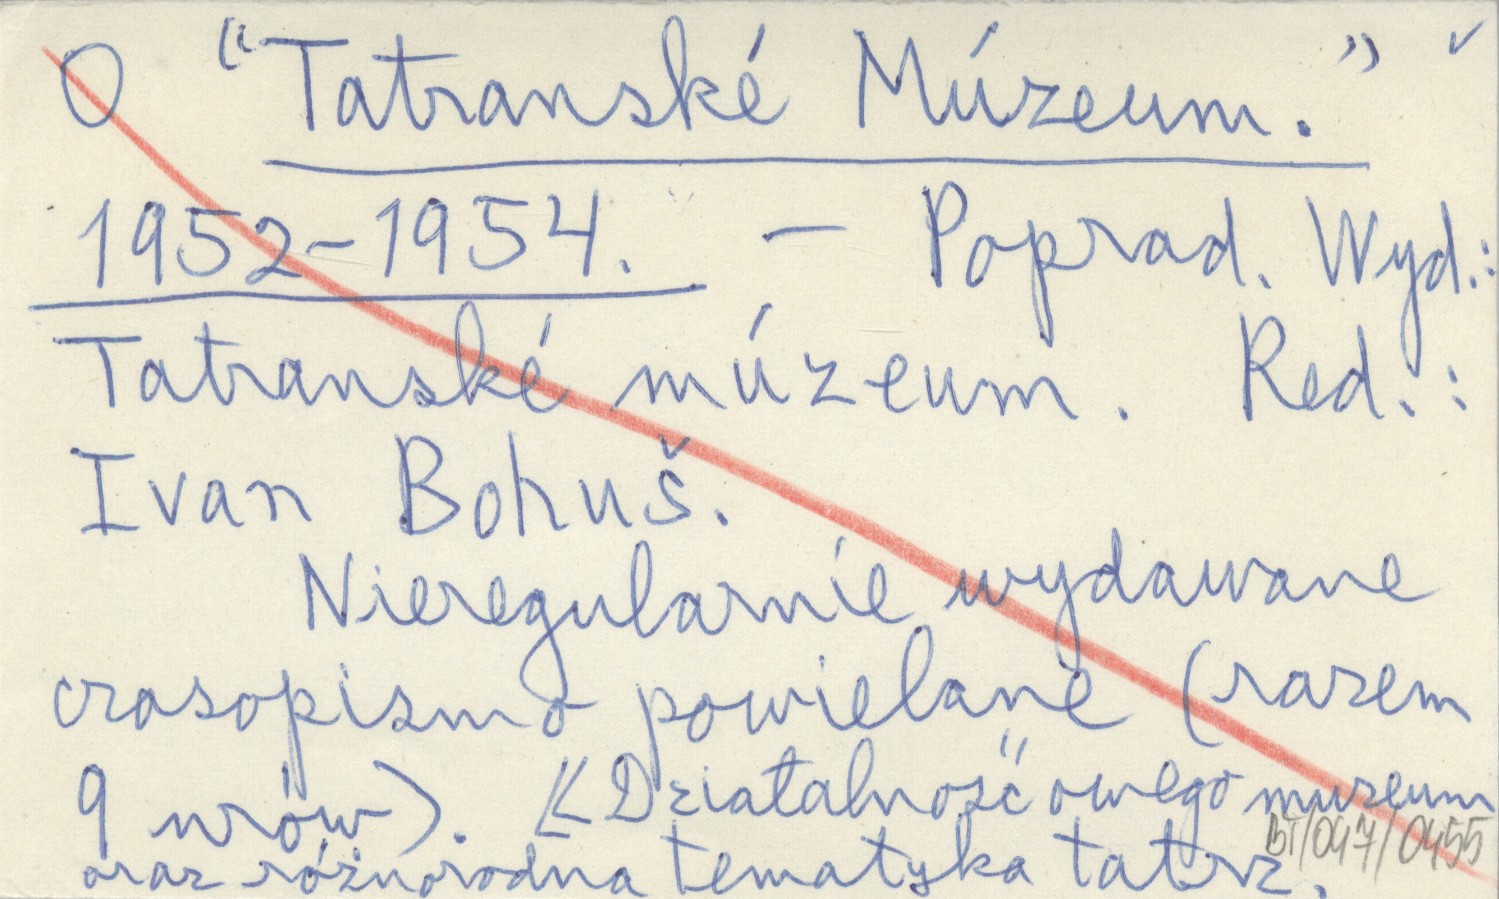 O "Tatranské Múzeum." ✓
1952-1954. – Poprad. Wyd.:
Tatranské múzeum. Red.:
Ivan Bohuš.
Nieregularnie wydawane
czasopismo powielane (razem
9 nrów). Działalność owego muzeum
oraz różnorodna tematyka tatrz.
BT/047/0455